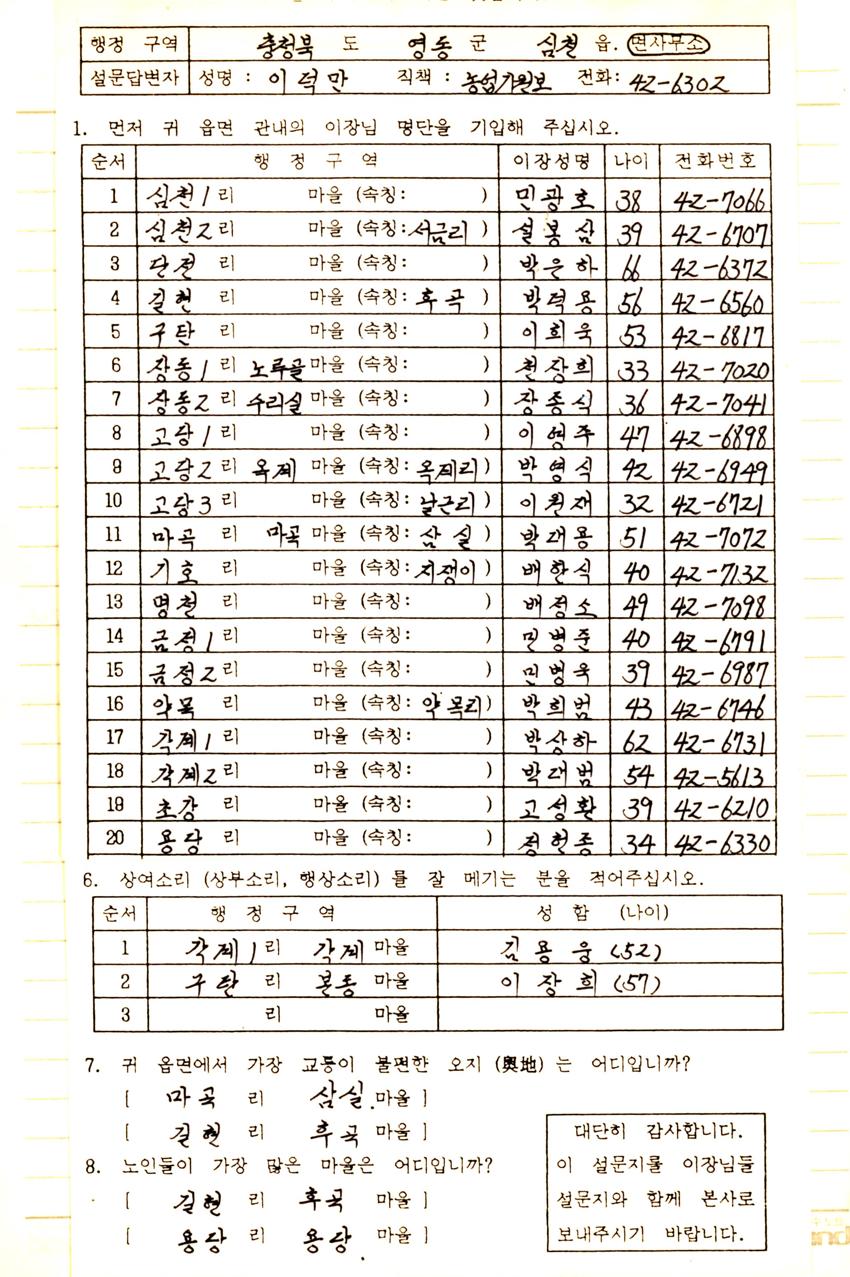 행정 구역 충청북 도 영동 군 심천 읍. 면사무소
설문답변자 성명 : 이덕만 직책 : 농업기원보 전화: 42-6302
1. 먼저 귀 읍면 관내의 이장님 명단을 기입해 주십시오.
순서 행 정 구 역 이장성명 나이 전화번호
1 심천1리 마을 (속칭: ) 민광호 38 42-7066
2 심천2리 마을 (속칭: 서금리 ) 설봉삼 39 42-6707
3 단전 리 마을 (속칭: ) 박은하 66 42-6372
4 길현 리 마을 (속칭: 후곡 ) 박덕용 56 42-6560
5 구탄 리 마을 (속칭: ) 이희욱 53 42-6817
6 장동1 리 노루골 마을 (속칭: ) 천장희 33 42-7020
7 장동2 리 수리실 마을 (속칭: ) 장종식 36 42-7041
8 고당1 리 마을 (속칭: ) 이영주 47 42-6898
9 고당2 리 옥계 마을 (속칭: 옥계리) 박영식 42 42-6949
10 고당3 리 마을 (속칭: 날근리) 이원재 32 42-6721
11 마곡 리 마곡 마을 (속칭: 삼실 ) 박대용 51 42-7072
12 기호 리 마을 (속칭: 지쟁이 ) 배한식 40 42-7132
13 명천 리 마을 (속칭: ) 배정소 49 42-7098
14 금정1 리 마을 (속칭: ) 민병준 40 42-6791
15 금정2 리 마을 (속칭: ) 민병욱 39 42-6987
16 약목 리 마을 (속칭: 약목리) 박희범 43 42-6746
17 각계1 리 마을 (속칭: ) 박상하 62 42-6731
18 각계2 리 마을 (속칭: ) 박대범 54 42-5613
19 초강 리 마을 (속칭: ) 고성환 39 42-6210
20 용당 리 마을 (속칭: ) 정헌종 34 42-6330
6. 상여소리 (상부소리, 행상소리) 를 잘 메기는 분을 적어주십시오.
순서 행 정 구 역 성 함 (나이)
1 각계1 리 각계 마을 김용웅 (52)
2 구탄 리 본동 마을 이장희 (57)
3 리 마을
7. 귀 읍면에서 가장 교통이 불편한 오지 (奧地) 는 어디입니까?
[ 마곡 리 삼실 마을 ]
[ 길현 리 후곡 마을 ]
8. 노인들이 가장 많은 마을은 어디입니까?
[ 길현 리 후곡 마을 ]
[ 용당 리 용당 마을 ]
대단히 감사합니다.
이 설문지를 이장님들
설문지와 함께 본사로
보내주시기 바랍니다.